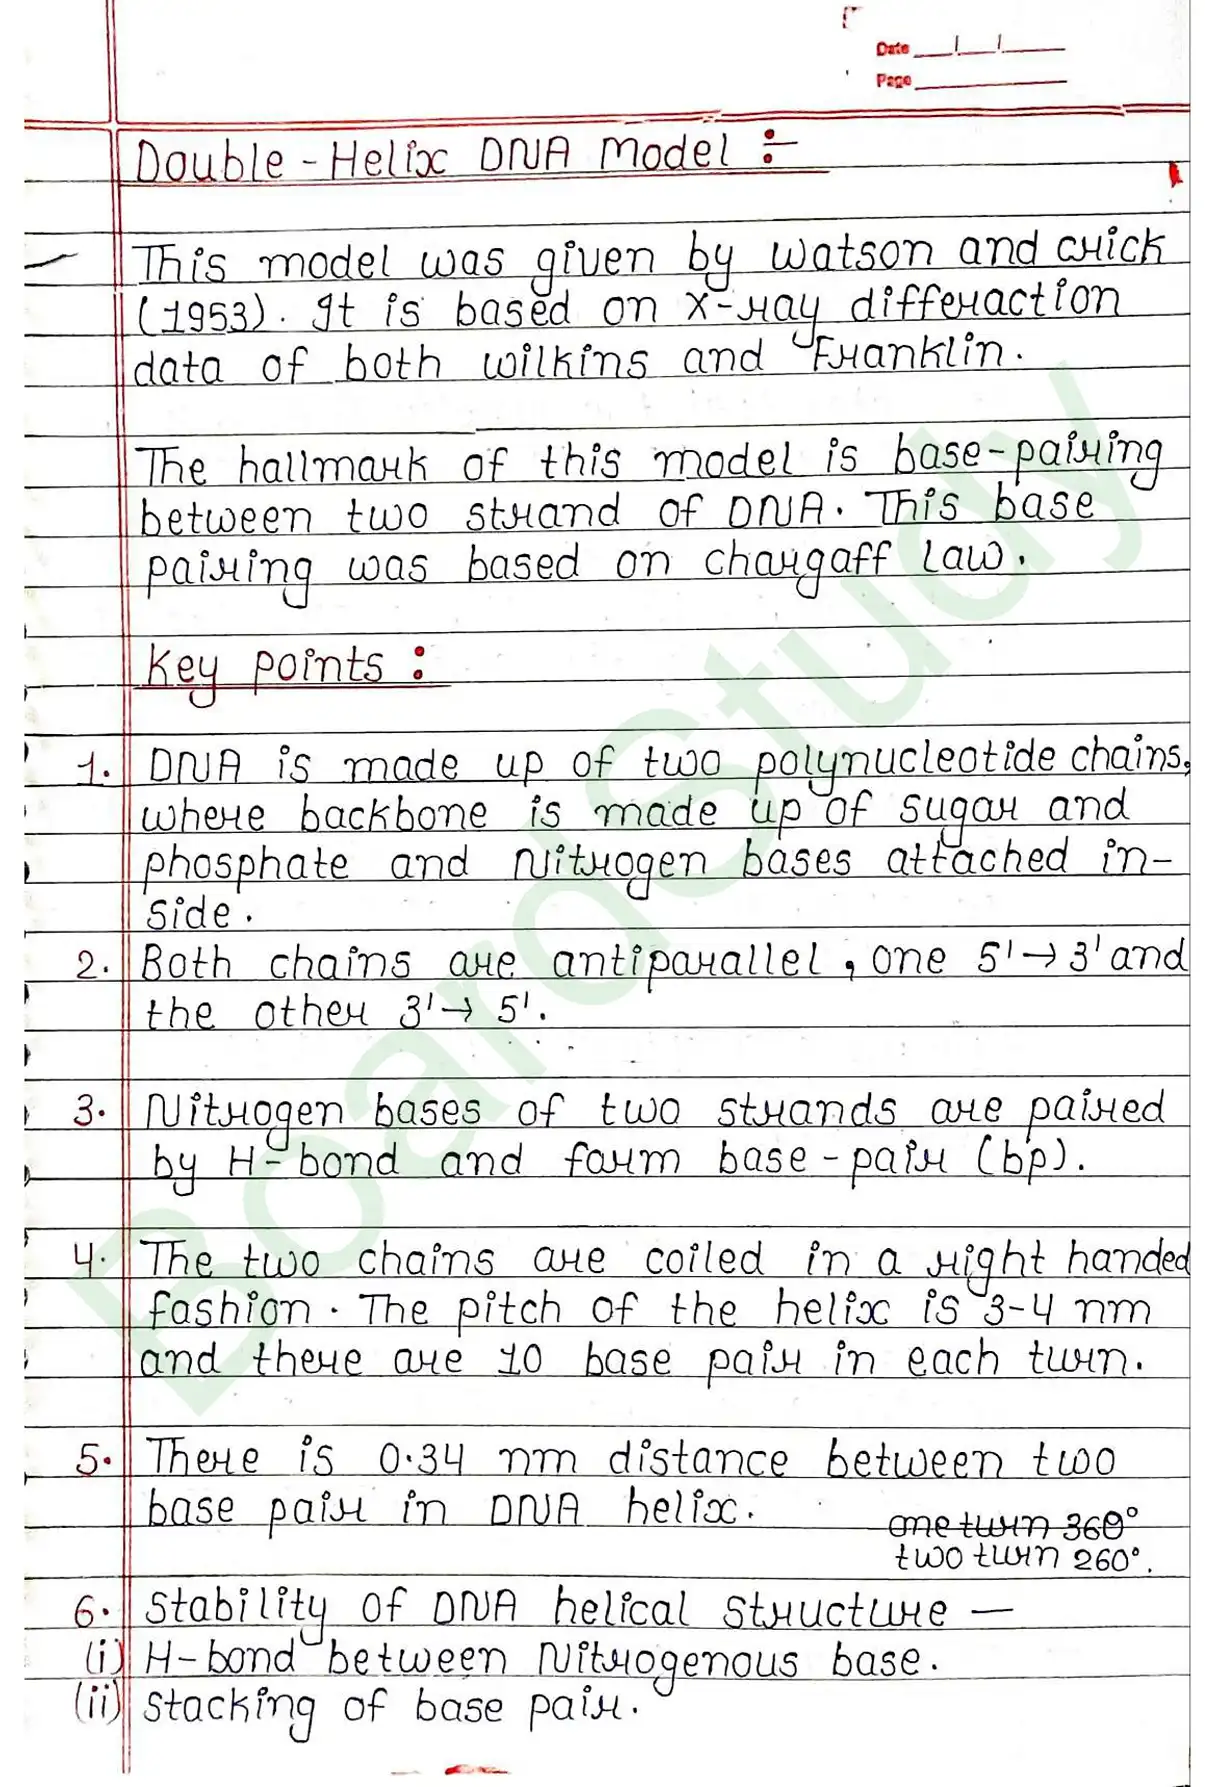 Date
Page
Double-Helix DNA Model :-
This model was given by Watson and Crick
(1953). It is based on X-ray differaction
data of both Wilkins and Franklin.
The hallmark of this model is base-pairing
between two strand of DNA. This base
pairing was based on chargaff Law.
Key points :
1. DNA is made up of two polynucleotide chains,
where backbone is made up of sugar and
phosphate and Nitrogen bases attached in-
side.
2. Both chains are antiparallel, one 5'→3' and
the other 3'→5'.
3. Nitrogen bases of two strands are paired
by H-bond and form base-pair (bp).
4. The two chains are coiled in a right handed
fashion. The pitch of the helix is 3-4 nm
and there are 10 base pair in each turn.
5. There is 0.34 nm distance between two
base pair in DNA helix.
one turn 360°
two turn 260°.
6. Stability of DNA helical structure —
(i) H-bond between Nitrogenous base.
(ii) Stacking of base pair.
BoardStudy